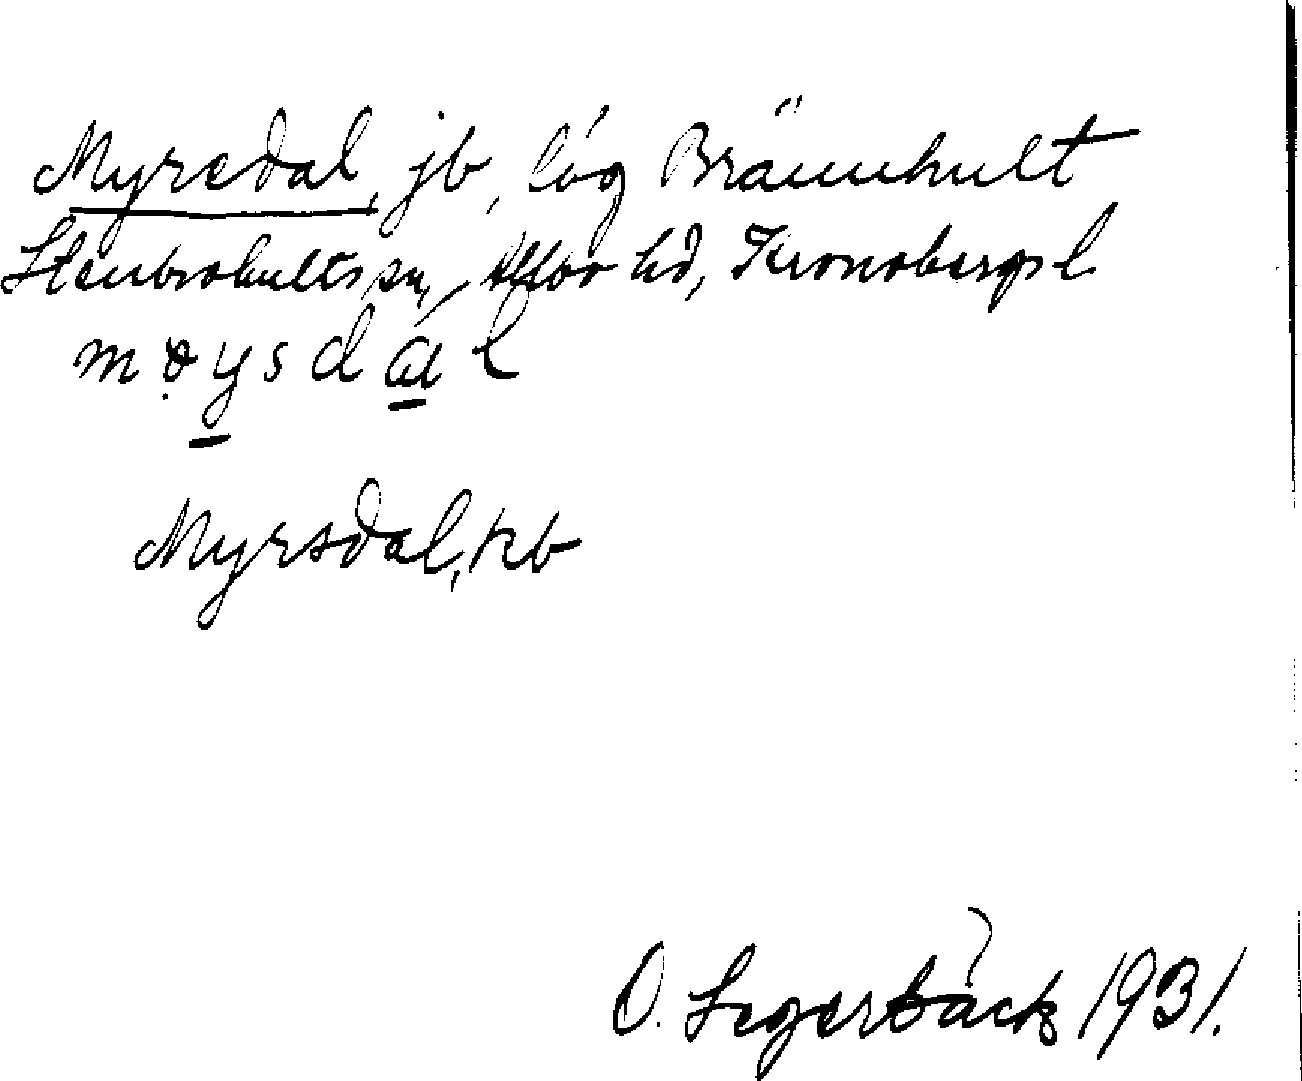 Myredal, jb, låg Brännhult
Stenbrohults sn, Allbo hd, Kronobergs l
Myrsdal, kb
O. Segerbäck 1931.